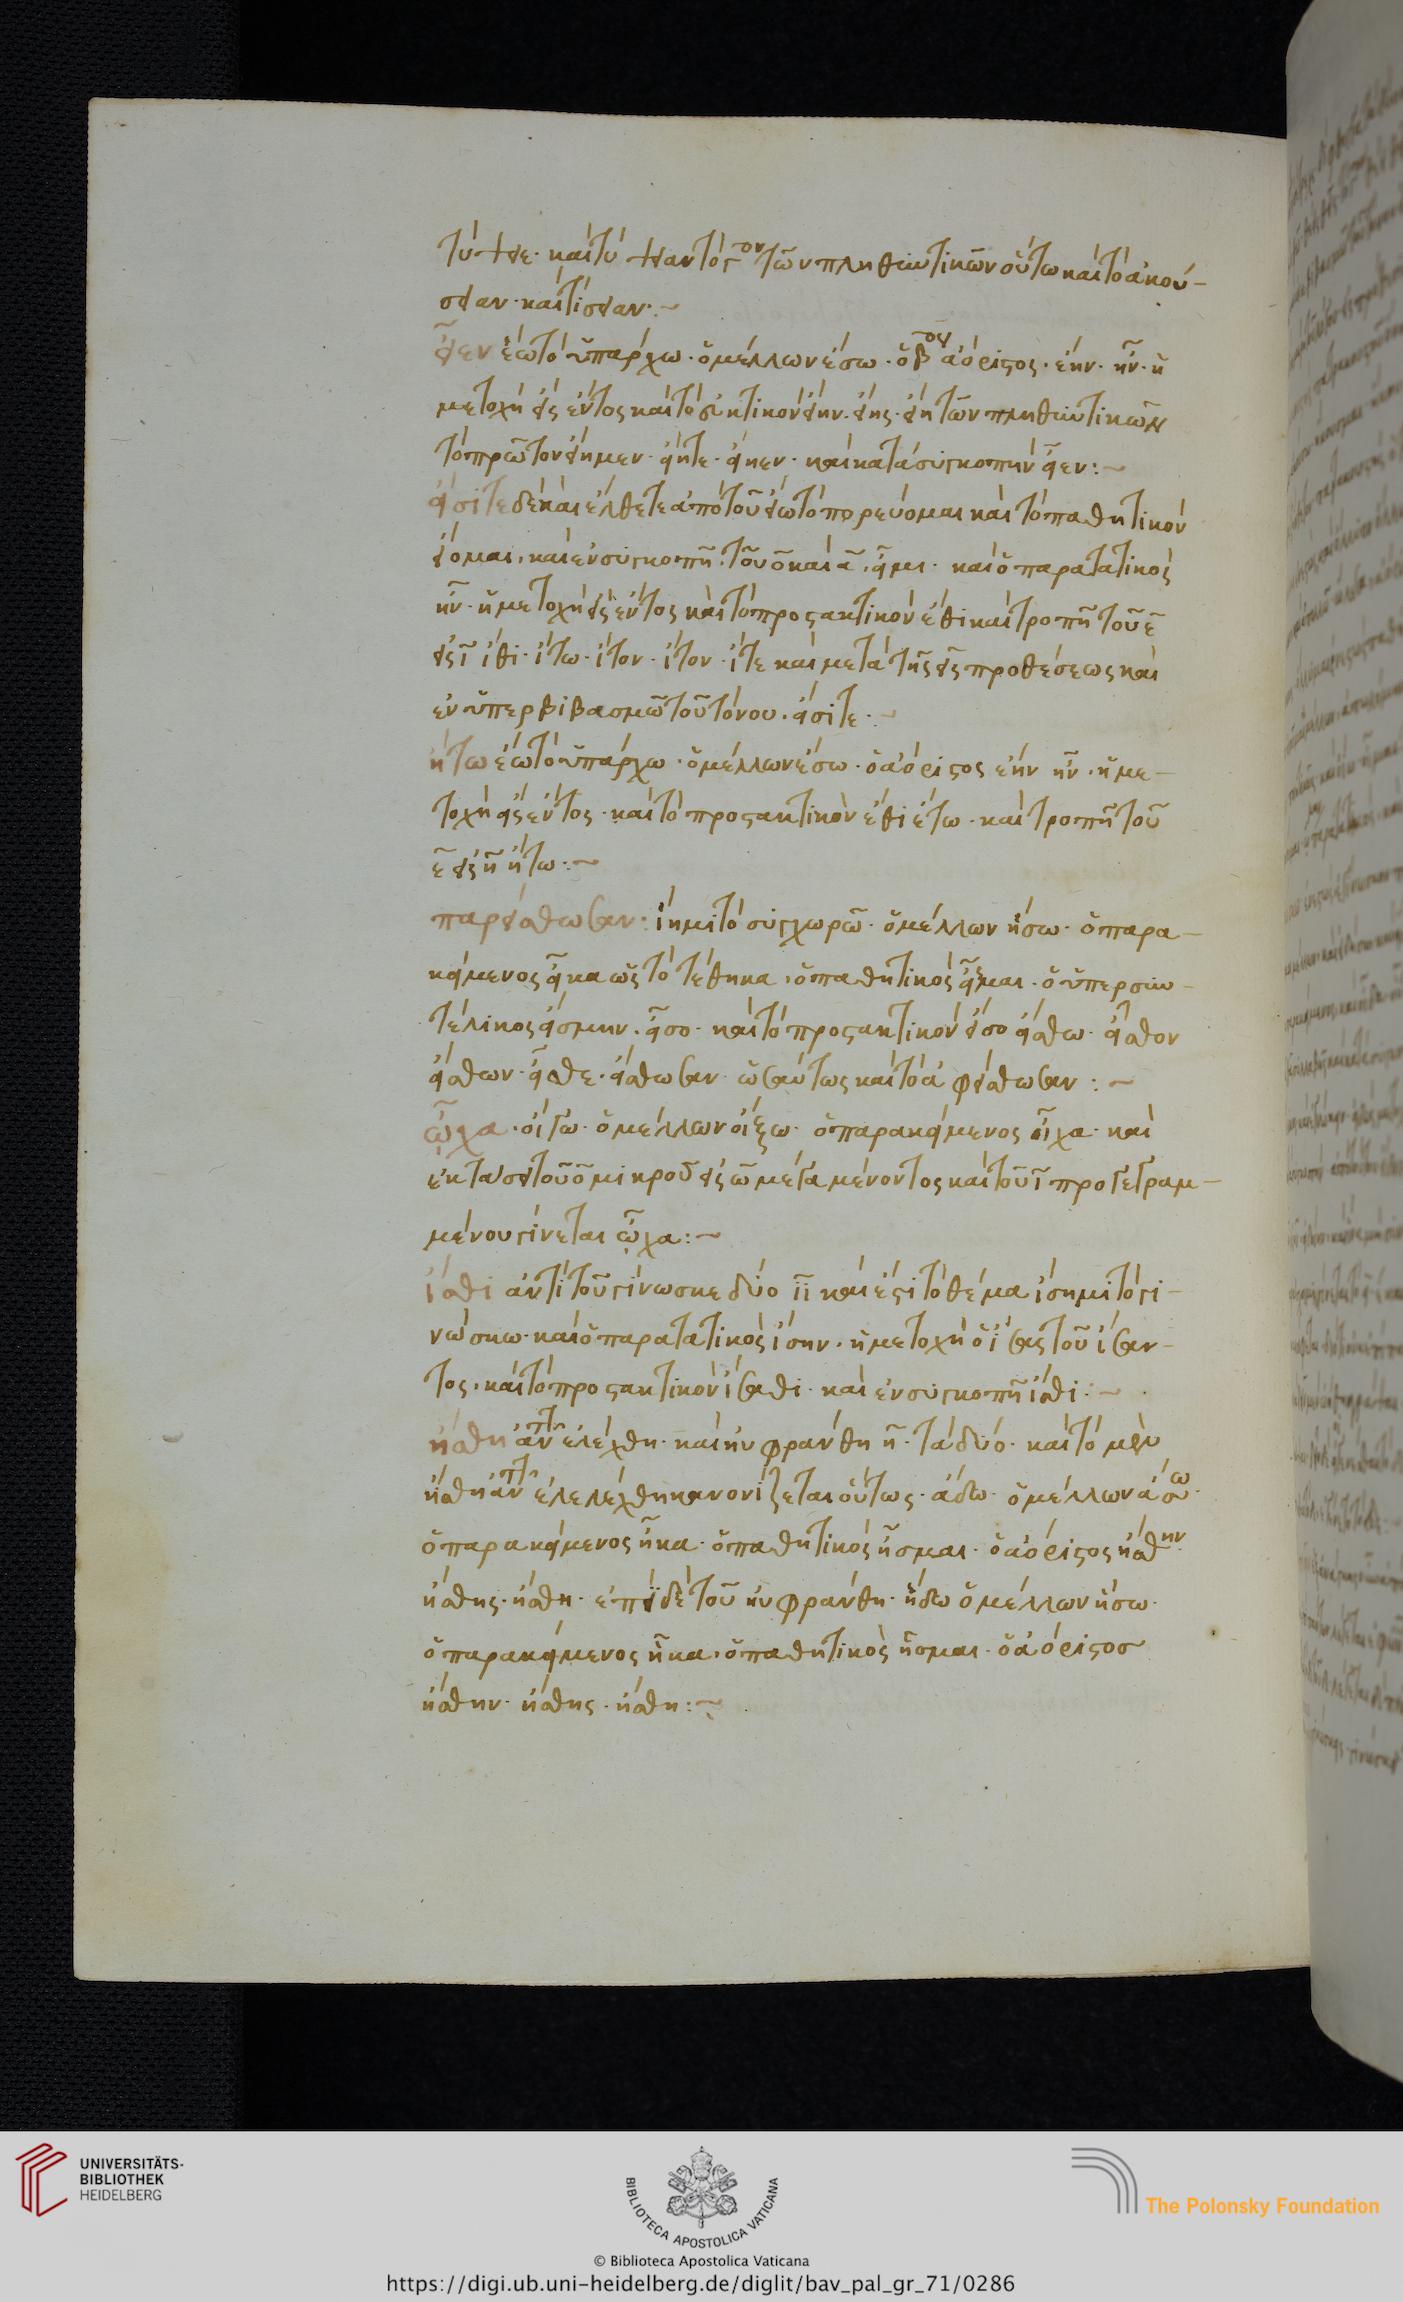 τύψειε· καὶ τύψαν τὸ γ^ον τῶν πληθυντικῶν οὕτω καὶ τὸ ἀκού-
σειαν· καὶ τίσειαν:~
εἶεν ἔω τὸ ὑπάρχω· ὁ μέλλων ἔσω· ὁ β^ος ἀόριστος· ἔην· ἦν· ἡ
μετοχὴ εἲς ἔντος καὶ τὸ εὐκτικὸν εἴην· εἴης· εἴη τῶν πληθυντικῶν
τὸ πρῶτον εἴημεν· εἴητε· εἴηεν· καὶ κατὰ συγκοπὴν εἶεν:~
εἴσιτε δὲ καὶ ἔλθετε ἀπὸ τοῦ εἴω τὸ πορεύομαι καὶ τὸ παθητικὸν
εἴομαι· καὶ ἐν συγκοπῇ τοῦ ο καὶ α· εἶμι· καὶ ὁ παρατατικὸς
ἦν· ἡ μετοχὴ εἲς ἔντος καὶ τὸ προστακτικὸν ἔθι καὶ τροπῇ τοῦ ε
εἰς ι ἴθι· ἴτω· ἴτον· ἴτον· ἴτε καὶ μετὰ τῆς εἰς προθέσεως καὶ
ἐν ὑπερβιβασμῶ τοῦ τόνου· εἴσιτε·~
ἤτω ἔω τὸ ὑπάρχω· ὁ μέλλων ἔσω· ὁ ἀόριστος ἔην ἦν· ἡ με-
τοχὴ εἲς ἔντος· καὶ τὸ προστακτικὸν ἔθι ἔτω· καὶ τροπῇ τοῦ
ε εἰς η ἤτω:~
παρείσθωσαν· ἵημι τὸ συγχωρῶ· ὁ μέλλων ἥσω· ὁ παρα-
κείμενος εἷκα ὡς τὸ τέθηκα· ὁ παθητικὸς εἷμαι· ὁ ὑπερσυν-
τέλικος εἵσμην· εἷσο· καὶ τὸ προστακτικὸν εἷσο εἵσθω· εἷσθον
εἵσθων· εἷσθε· εἵσθωσαν· ὡσαύτως καὶ τὸ ἀφείσθωσαν:~
ᾦχα· οἴγω· ὁ μέλλων οἴξω· ὁ παρακείμενος οἶχα· καὶ
ἐκτάσει τοῦ ο μικροῦ εἰς ω μέγα μένοντος καὶ τοῦ ι προγεγραμ-
μένου γίνεται ᾦχα:~
ἴσθι ἀντὶ τοῦ γίνωσκε δύο ιι καὶ ἔστι τὸ θέμα ἴσημι τὸ γι-
νώσκω· καὶ ὁ παρατατικὸς ἴσην· ἡ μετοχὴ ὁ ἴσας τοῦ ἴσαν-
τος· καὶ τὸ προστακτικὸν ἴσαθι· καὶ ἐν συγκοπῇ ἴσθι:~
ἤσθη ἀντὶ τοῦ ἐλέχθη· καὶ ηὐφράνθη η· τὰ δύο· καὶ τὸ μὲν
ἤσθη ἀντὶ τοῦ ἐλελέχθη κανονίζεται οὕτως· ἄδω· ὁ μέλλων ἄσω·
ὁ παρακείμενος ἦκα· ὁ παθητικὸς ἦσμαι· ὁ ἀόριστος ἤσθην·
ἤσθης· ἤσθη· ἐπεὶ δὲ τοῦ ηὐφράνθη· ἥδω ὁ μέλλων ἥσω·
ὁ παρακείμενος ἧκα· ὁ παθητικὸς ἧσμαι· ὁ ἀόριστοσ
ἥσθην· ἥσθης· ἥσθη:~
UNIVERSITÄTS-
BIBLIOTHEK
HEIDELBERG
BIBLIOTECA APOSTOLICA VATICANA
The Polonsky Foundation
© Biblioteca Apostolica Vaticana
https://digi.ub.uni-heidelberg.de/diglit/bav_pal_gr_71/0286